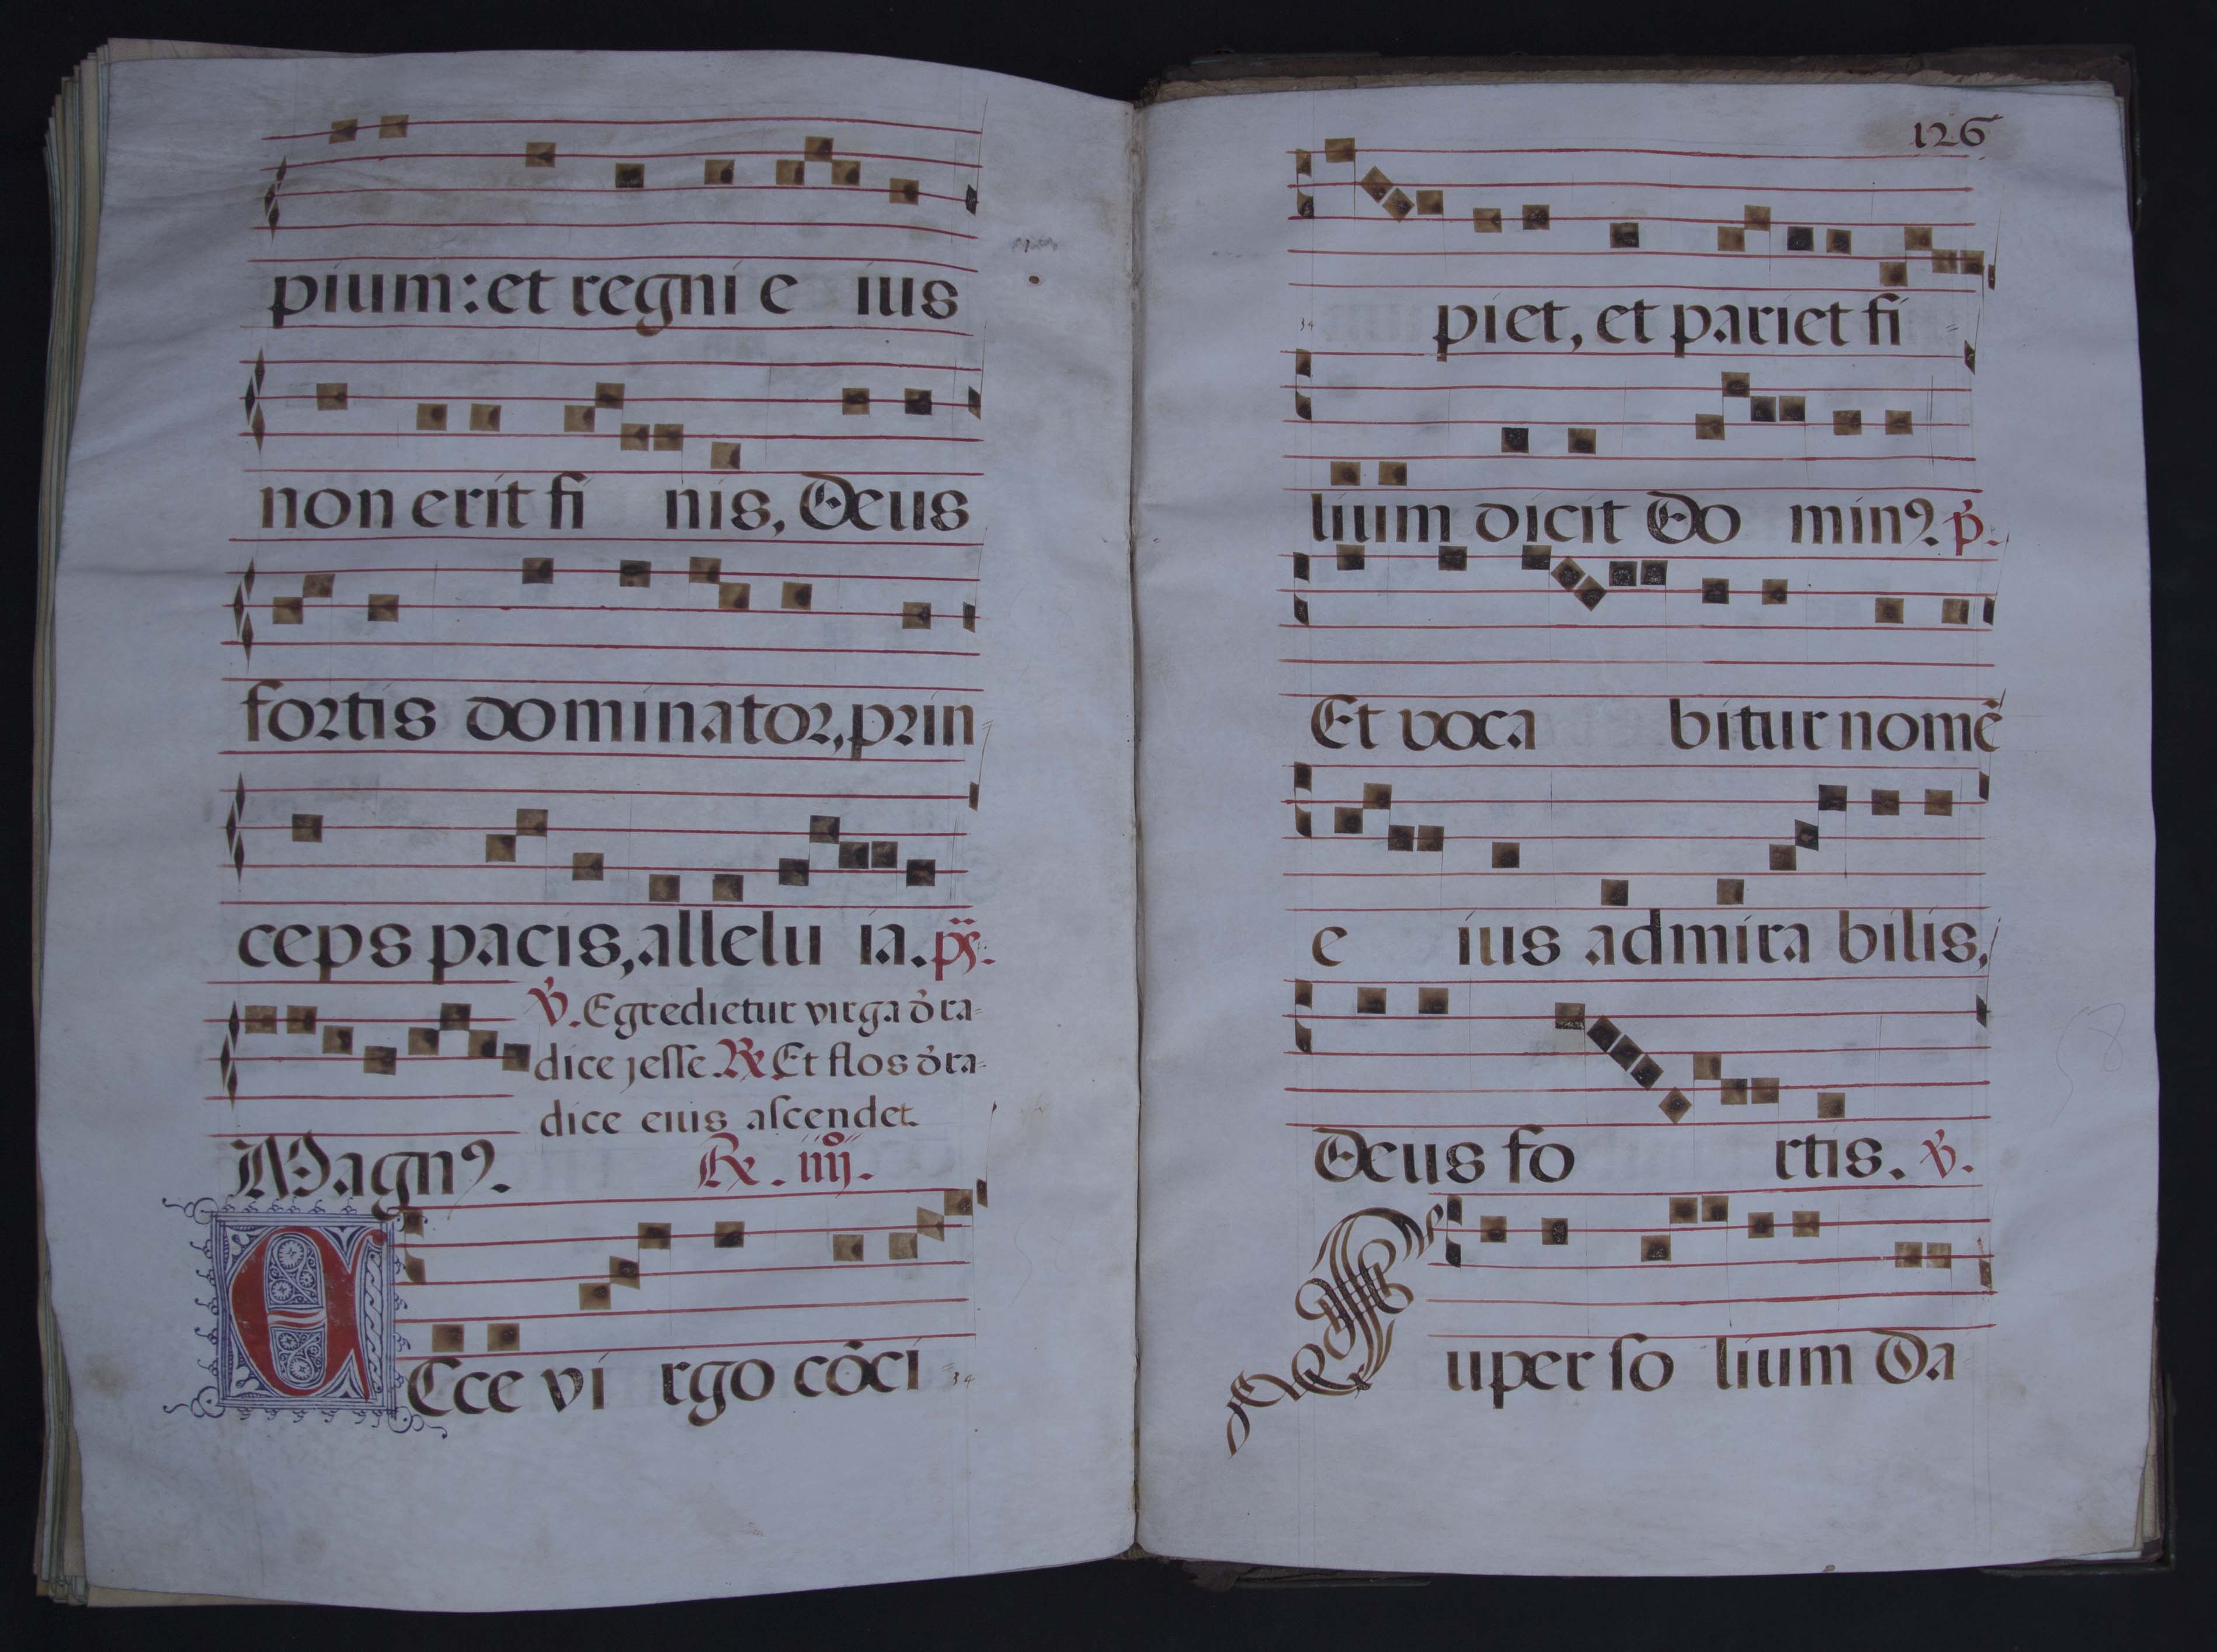 pium: et regni e ius
non erit fi nis, Deus
fortis dominator, prin=
ceps pacis, allelu ia. ps.
℣. Egredietur virga d̄ ra=
dice jesse. ℟ Et flos d̄ ra=
dice eius ascendet.
Magnꝰ. ℟. iiijº.
ECce vi rgo cōci =
126
piet, et pariet fi =
lium dicit Do minꝰ. p̄.
Et voca bitur nomē
e ius admira bilis,
Deus fo rtis. ℣.
Super so lium Da =